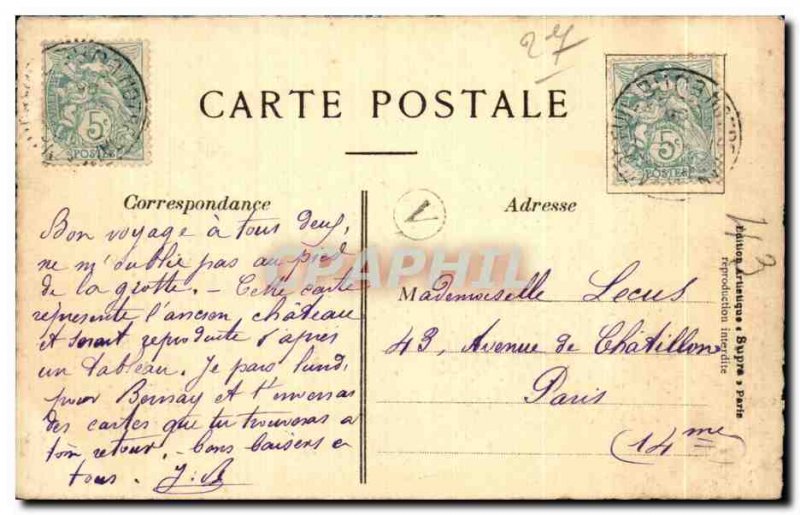 27
CARTE POSTALE
5c
POSTES
5c
POSTES
Correspondance
Bon voyage à tous deux,
ne m'oublie pas au pied
de la grotte. - Cette carte
représente l'ancien château
et serait reproduite d'après
un tableau. Je pars lundi
pour Bernay et t'enverrai
des cartes que tu trouveras a
ton retour. - bons baisers a
tous. J.B
V
Adresse
Mademoiselle Lecus
43, Avenue de Chatillon
Paris
(14me
43
Edition Artistique « Supra » Paris
reproduction interdite
CPAPHIL